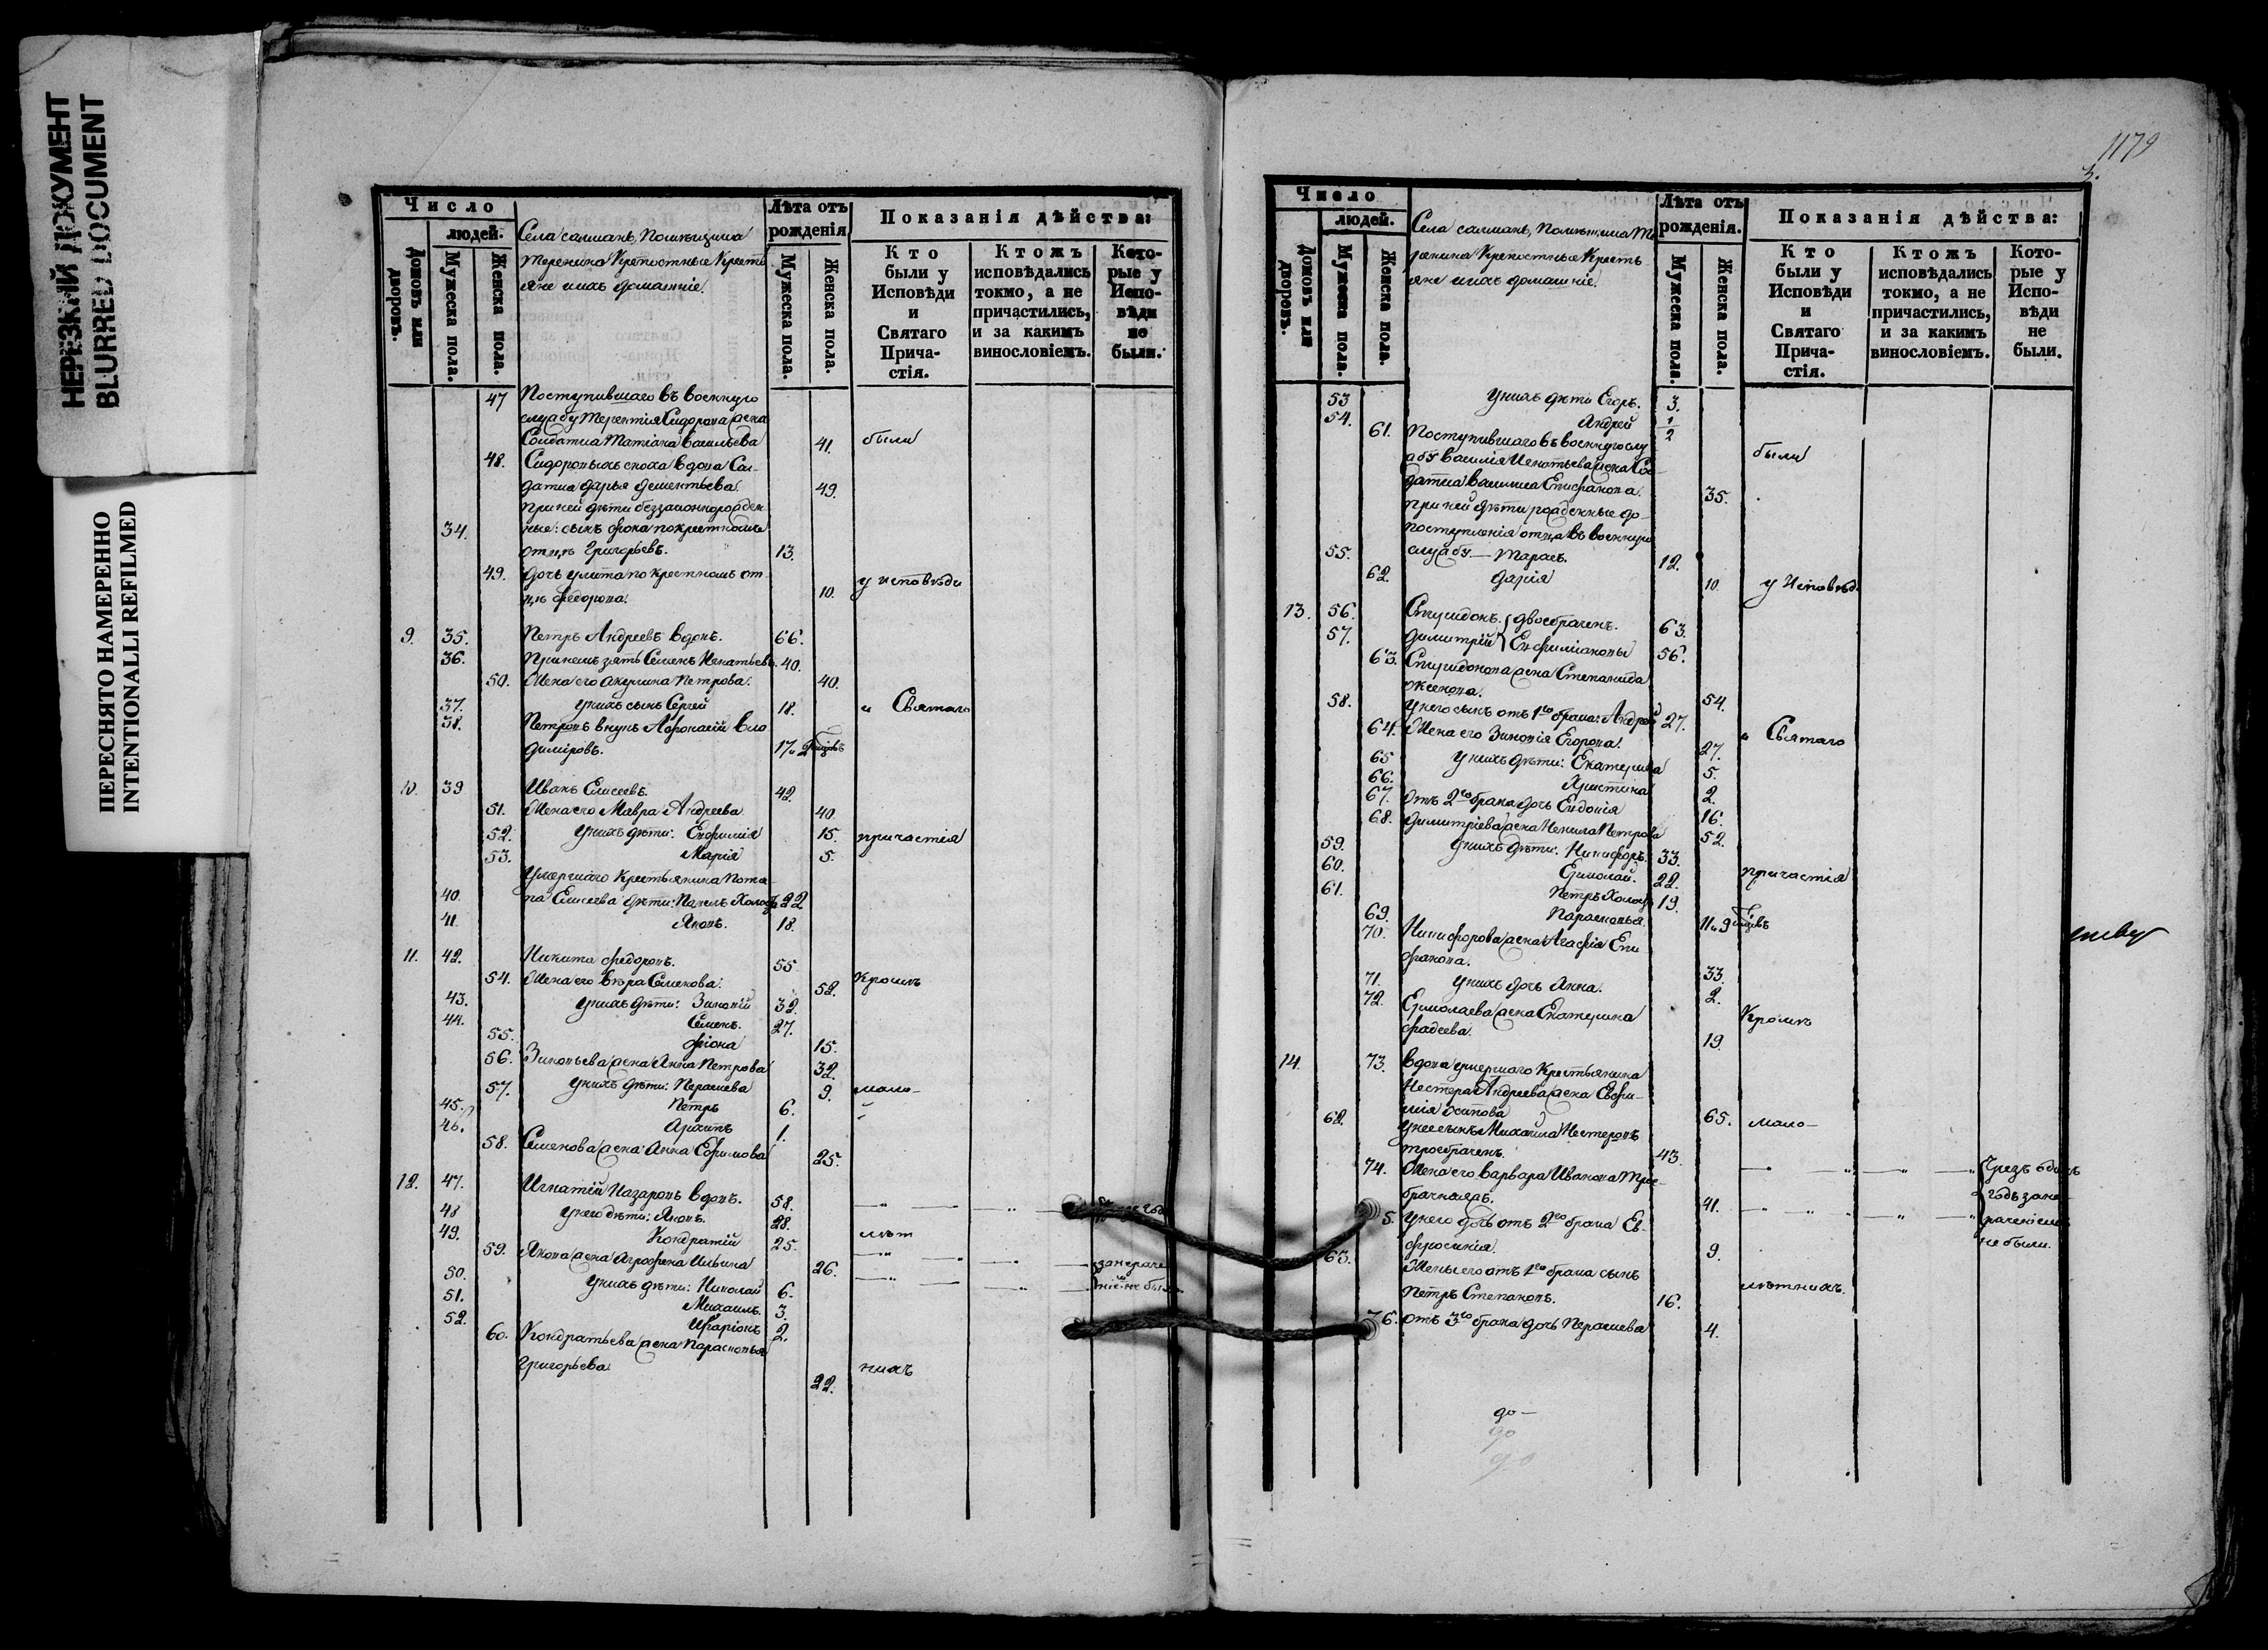 НЕРЕЗКИЙ ДОКУМЕНТ
BLURRED DOCUMENT
ПЕРЕСНЯТО НАМЕРЕННО
INTENTIONALLI REFILMED
Число
людей.
Домовъ или дворовъ.
Мужеска пола.
Женска пола.
Села салманъ, Помѣщика
Теренина Крѣпостные Крестья
яне ихъ домашніе.
Лѣта отъ рожденія
Мужеска пола.
Женска пола.
Показанія дѣйства:
Кто были у Исповѣди и Святаго Причастія.
Ктожъ исповѣдались токмо, а не причастились, и за какимъ винословіемъ.
Которые у Исповѣди не были.
47 Поступившаго въ военную
службу Терентія Сидорова жена
Солдатка Татіана Васильева 41. были
48. Сидоровыхъ сноха вдова Сол-
датка Дарья Дементьева. 49.
При ней дѣти беззаконнорожден-
34. ные: сынъ Фока по крестному
отцѣ Григорьевъ. 13.
49. дочь Улита по крестномъ от-
цѣ Федорова. 10. у исповѣди
9. 35. Петръ Андреевъ вдовъ. 66.
36. При немъ зять Семенъ Игнатьевъ. 40.
50. Жена его Акулина Петрова. 40.
37. у нихъ сынъ Сергей 18. и Святаго
38. Петровъ внукъ Афонасій Вла
диміровъ. 17
10. 39 Иванъ Елисеевъ. 42.
51. Жена его Мавра Андреева 40.
52. у нихъ дѣти: Евфимія 15. причастія
53. Марія 5.
Умершаго Крестьянина Пота-
40. па Елисеева дѣти: Павелъ Холостъ 22
41. Яковъ. 18.
11. 42. Никита Федоровъ. 55
54. Жена его Вѣра Семенова. 52. Кромѣ
43. у нихъ дѣти: Зиновій 32.
44. Семенъ. 27.
55. Фіона 15.
56. Зиновьева жена Анна Петрова 32.
57. у нихъ дѣти: Перасиева 9. мало-
45. Петръ 6.
46. Архипъ 1.
58. Семенова жена Анна Ефимова 25.
12. 47. Игнатій Назаровъ вдовъ. 58.
48 у него дѣти: Яковъ. 28.
49. Кондратій 25. лѣт
59. Якова жена Агрофена Ильина 26. за нераче
50. у нихъ дѣти: Николай 6. ніе не бы
51. Михаилъ. 3.
52. Иларіонъ 2.
60. Кондратьева жена Парасковья
Григорьева. 22. нихъ
1179
3.
Число
людей.
Домовъ или дворовъ.
Мужеска пола.
Женска пола.
Села салманъ, Помѣщика Те
ренина Крѣпостные Кресть
яне ихъ домашніе.
Лѣта отъ рожденія.
Мужеска пола.
Женска пола.
Показанія дѣйства:
Кто были у Исповѣди и Святаго Причастія.
Ктожъ исповѣдались токмо, а не причастились, и за какимъ винословіемъ.
Которые у Исповѣди не были.
53 у нихъ дѣти Егоръ. 3.
54. Андрей 1/2
61. Поступившаго въ военную слу
жбу Василія Игнатьева жена Сол
датка Василиса Епифанова. 35. были
при ней дѣти рожденные до
поступленія отца въ военную
55. службу — Тарасъ. 12.
62. Дарія 10. у Исповѣди
13. 56. Спиридонъ двоебраченъ. 63.
57. Димитрій Евфиміановы 56.
63. Спиридонова жена Степанида
Аксенова. 54.
58. у него сынъ отъ 1го брака: Андрей 27.
64. Жена его Зиновія Егорова. 27. и Святаго
65 у нихъ дѣти: Екатерина 5.
66. Христина 2.
67. отъ 2го брака дочь Евдокія 16.
68. Димитріева жена Ненила Петрова 52.
59. у нихъ дѣти: Никифоръ. 33.
60. Ермолай. 22. причастія
61. Петръ Холостъ 19.
69. Парасковья 11
70. Никифорова жена Агафія Епи
фанова. 33.
71. у нихъ дочь Анна. 2.
72. Ермолаева жена Екатерина
Фадеева. 19. Кромѣ
14. 73. Вдова умершаго Крестьянина
Нестера Андреева жена Евфи-
мія Осипова 65. мало-
62. у нее сынъ Михаила Нестеровъ
троебраченъ. 43.
74. Жена его Варвара Иванова трое-
брачная. 41. Чрезъ одинъ
5. у него дочь отъ 2го брака Ев- годъ за не-
фросинія. 9. раченіемъ не были.
63. Жены его отъ 1го брака сынъ
Петръ Степановъ. 16. лѣтнихъ.
76. отъ 3го брака дочь Перасиева 4.
до-
до
до